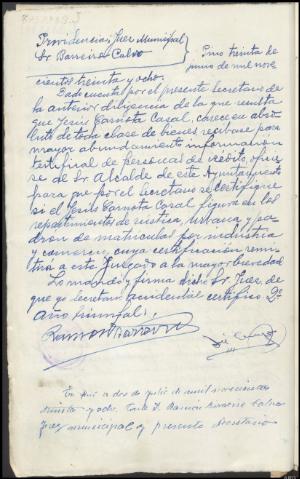 Providencia Juez Municipal
Sr Barreiro Calvo
Pino treinta de
junio de mil nove
cientos treinta y ocho.
Dada cuenta por el presente Secretario de
la anterior diligencia de la que resulta
que Jesús Carnota Cazal, carece en abso
luto de toda clase de bienes recibase para
mayor abundamiento informacion
testifical de personas de credito, oficie
se al Sr Alcalde de este Ayuntamiento
para que por el Secretario se certifique
si el Jesús Carnota Cazal figura en los
repartimientos de rústica, urbana y pa
dron de matriculas por industria
y comercio, cuya certificación remi
tirá a este Juzgado a la mayor brevedad
Lo mandó y firma dicho Sr Juez, de
que yo Secretario accidental certifico. 2º
año triunfal;
Ramon Barreiro
En Pino a dos de julio de mil novecientos
treinta y ocho. Ante D. Ramón Barreiro Calvo
Juez municipal y presente Secretario